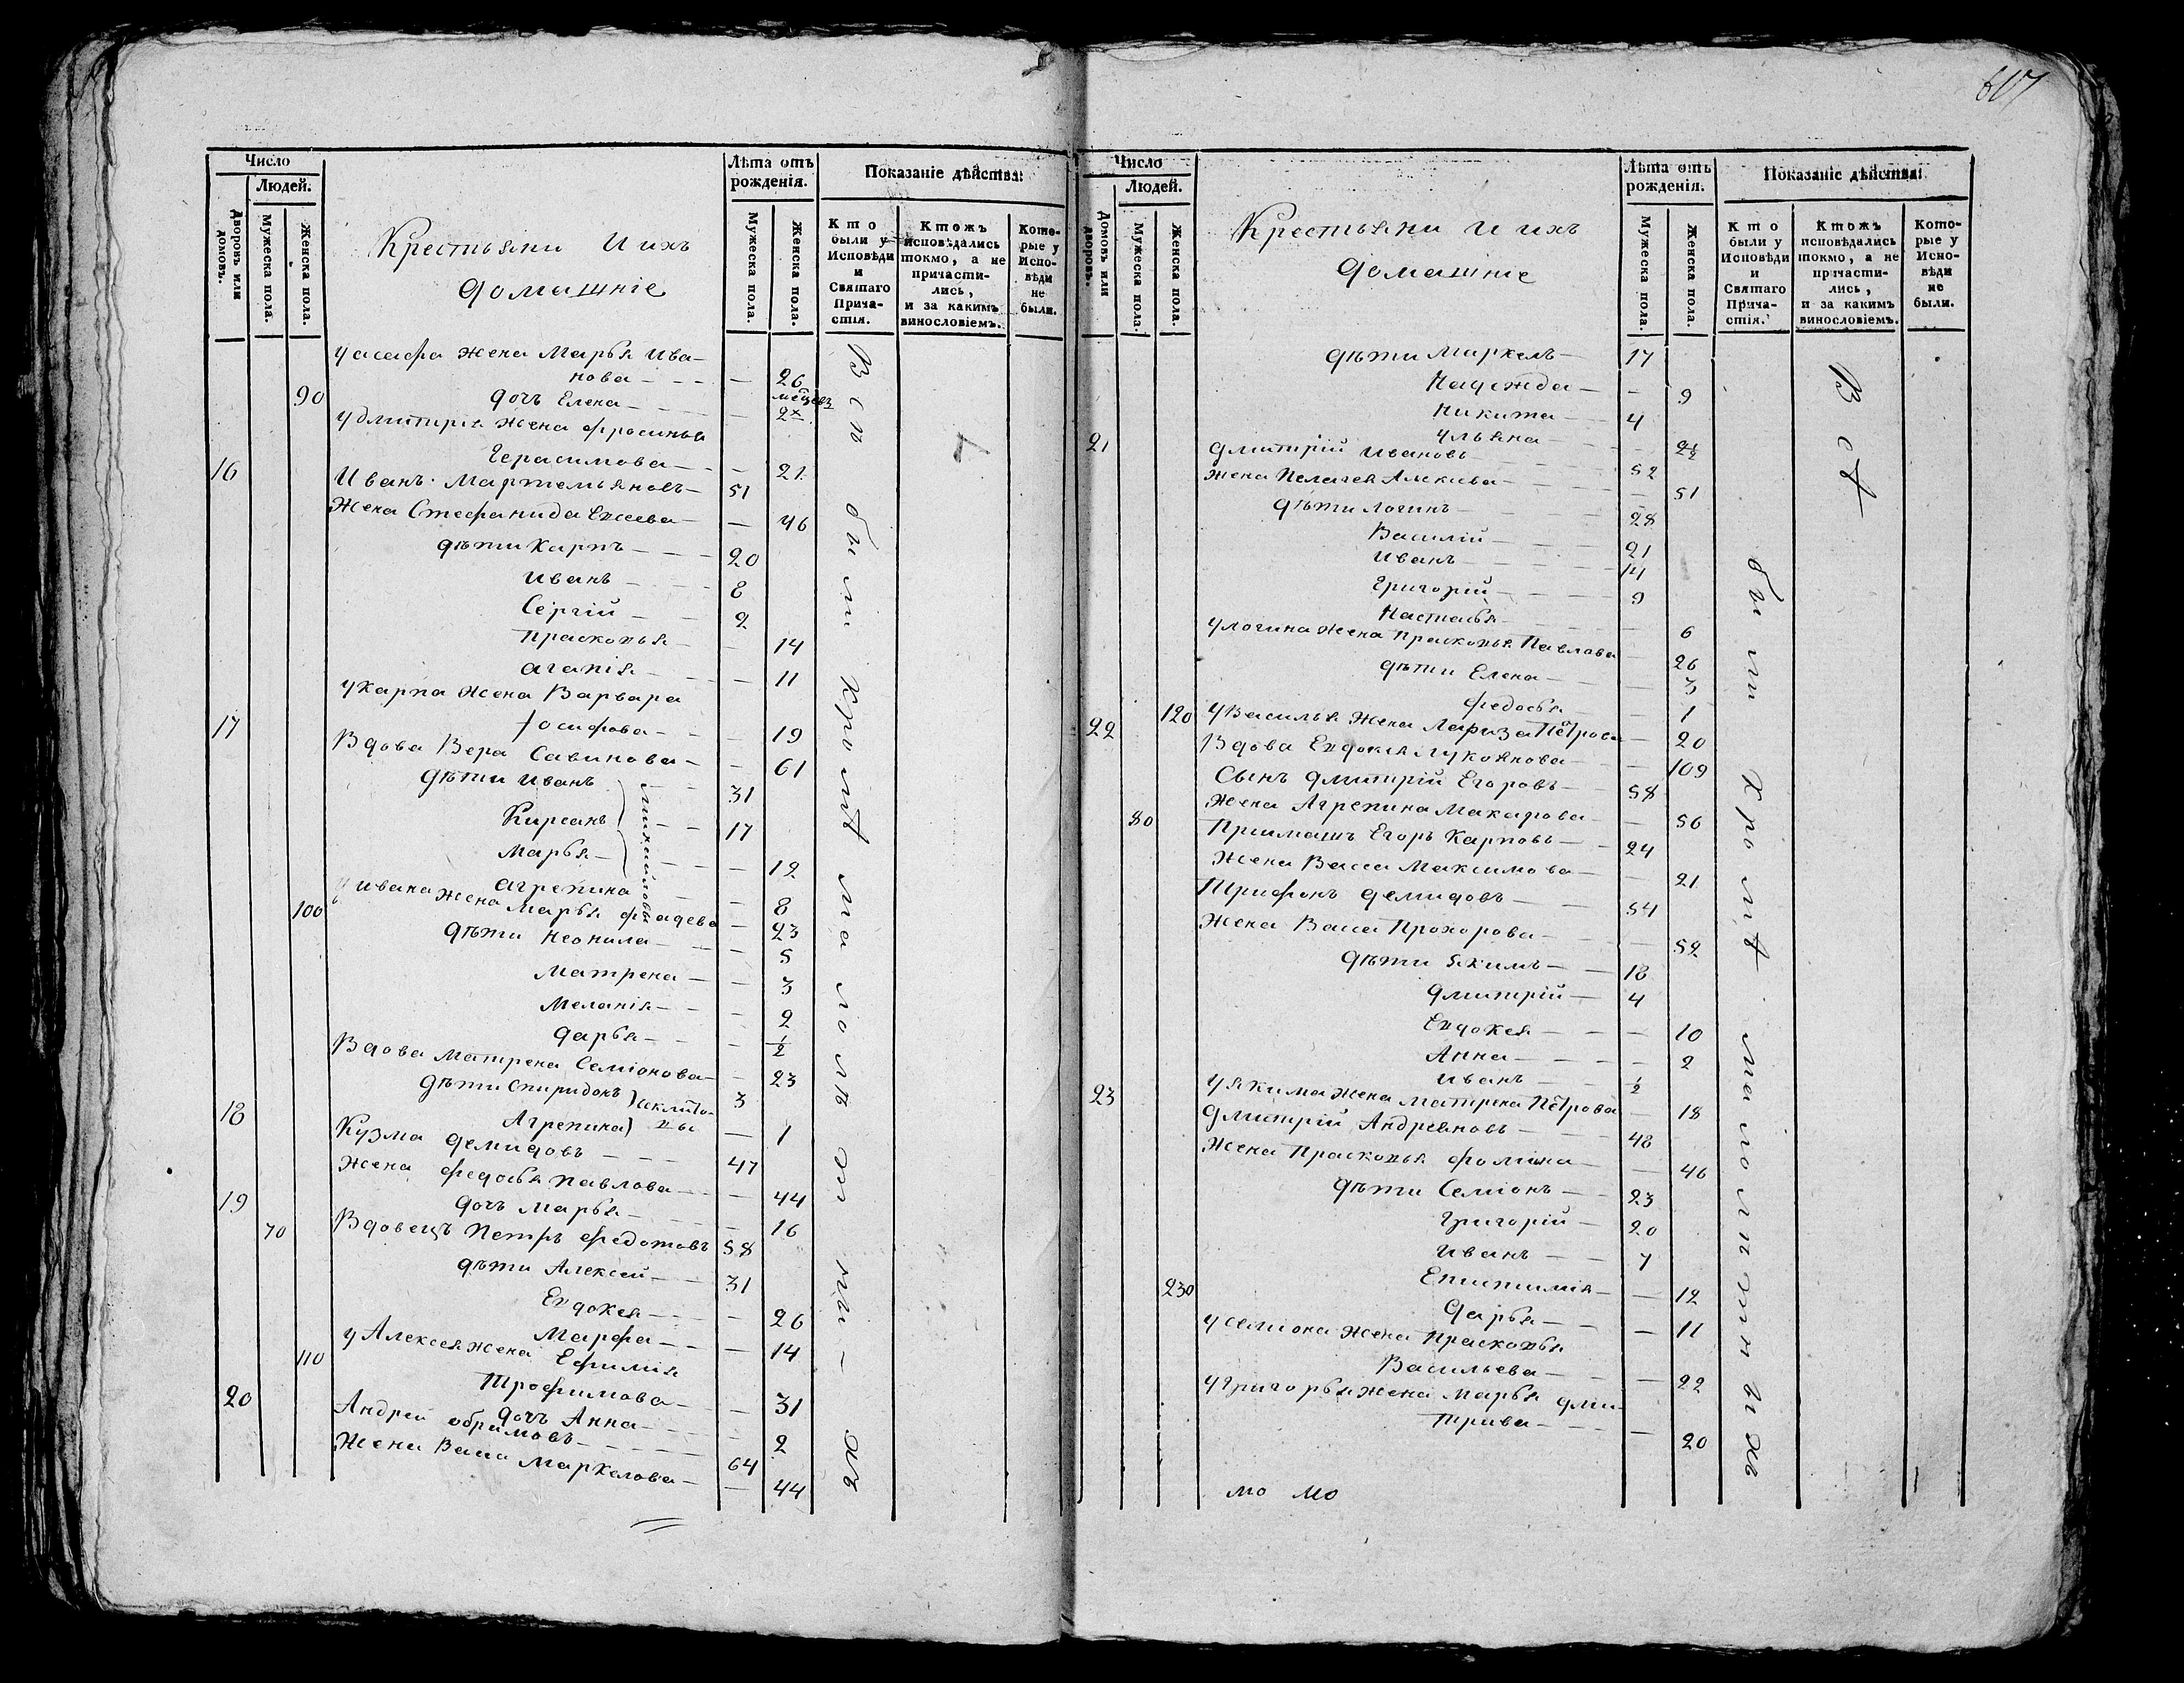 607
Число
Людей.
Дворовъ или домовъ.
Мужеска пола.
Женска пола.
Крестьяни И ихъ
домашніе
Лѣта отъ рожденія.
Мужеска пола.
Женска пола.
Показаніе дѣйства:
Кто были у Исповѣди и Святаго Прича-стія.
Ктожъ исповѣдались токмо, а не причасти-лись, и за какимъ винословіемъ.
Кото-рые у Испо-вѣди не были.
жена Марья Ива-
нова — — 26
90 дочь Елена — — месецъ
удмитрія жена фросинья
Герасимова — — 21
16 Иванъ Мартемьяновъ — 51
Жена Стефанида — — 46
дѣти Карпъ — 20
Иванъ — 8
Сергій — 2
Прасковья — — 14
агапія — — 11
укарпа жена Варвара
Іосифова — — 19
17 Вдова Вера Савинова — — 61
дѣти Иванъ — 31
Кирсанъ — 17
Марья — — 12
агрепина — 8
михайловы
100 у ивана жена Марья фадева — 23
дѣти неонила — — 5
матрена — — 3
меланія — — 2
дарья — — 1/2
Вдова матрена Семіонова — — 23
дѣти Спиридонъ 3
Агрепина — 1
18 Кузма демидовъ — 47
жена федосья павлова — — 44
дочь марья — — 16
19 70 Вдовецъ Петръ федотовъ 58
дѣти Алексей — 31
Евдокея — — 26
Марфа — — 14
110 у Алексея жена Ефимія
Трофимова — — 31
дочь Анна — — 2
20 Андрей — 64
Жена Васса Маркелова — — 44
Всѣ были кромѣ малолѣтнихъ
Число
Людей.
Домовъ или дворовъ.
Мужеска пола.
Женска пола.
Крестьяни И ихъ
домашніе
Лѣта отъ рожденія.
Мужеска пола.
Женска пола.
Показаніе дѣйства:
Кто были у Исповѣди и Святаго Прича-стія.
Ктожъ исповѣдались токмо, а не причасти-лись, и за какимъ винословіемъ.
Кото-рые у Испо-вѣди не были.
дѣти маркелъ — 17
Надежда — — 9
никита — 4
ульяна — —
21 дмитрій Ивановъ — 52
жена Пелагея — — 51
дѣти логинъ — 28
Василій — 21
иванъ — 14
Григорій — 9
Настасья — — 6
улогина жена прасковья Павлова — 26
дѣти Елена — — 3
федосья — — 1
120 уВасилья жена Петрова — 20
22 Вдова Евдокея лукоянова — — 109
Сынъ дмитрій Егоровъ — 58
жена Агрепина Макарова — — 56
80 Приимашъ Егоръ Карповъ — 24
Жена Васса Максимова — — 21
Трифонъ демидовъ — 54
Жена Васса Прохорова — — 52
дѣти якимъ — 18
дмитрій — 4
Евдокея — — 10
Анна — — 2
иванъ — 1/2
уякима жена матрена Петрова — 18
23 дмитрій Андреяновъ — 48
Жена Прасковья фомина — — 46
дѣти Семіонъ — 23
Григорій — 20
иванъ — 7
230 — 12
дарья — — 11
усеміона жена прасковья
Васильева — — 22
угригорья жена марья дми-
трива — — 20
Всѣ были кромѣ малолѣтнихъ
мо мо